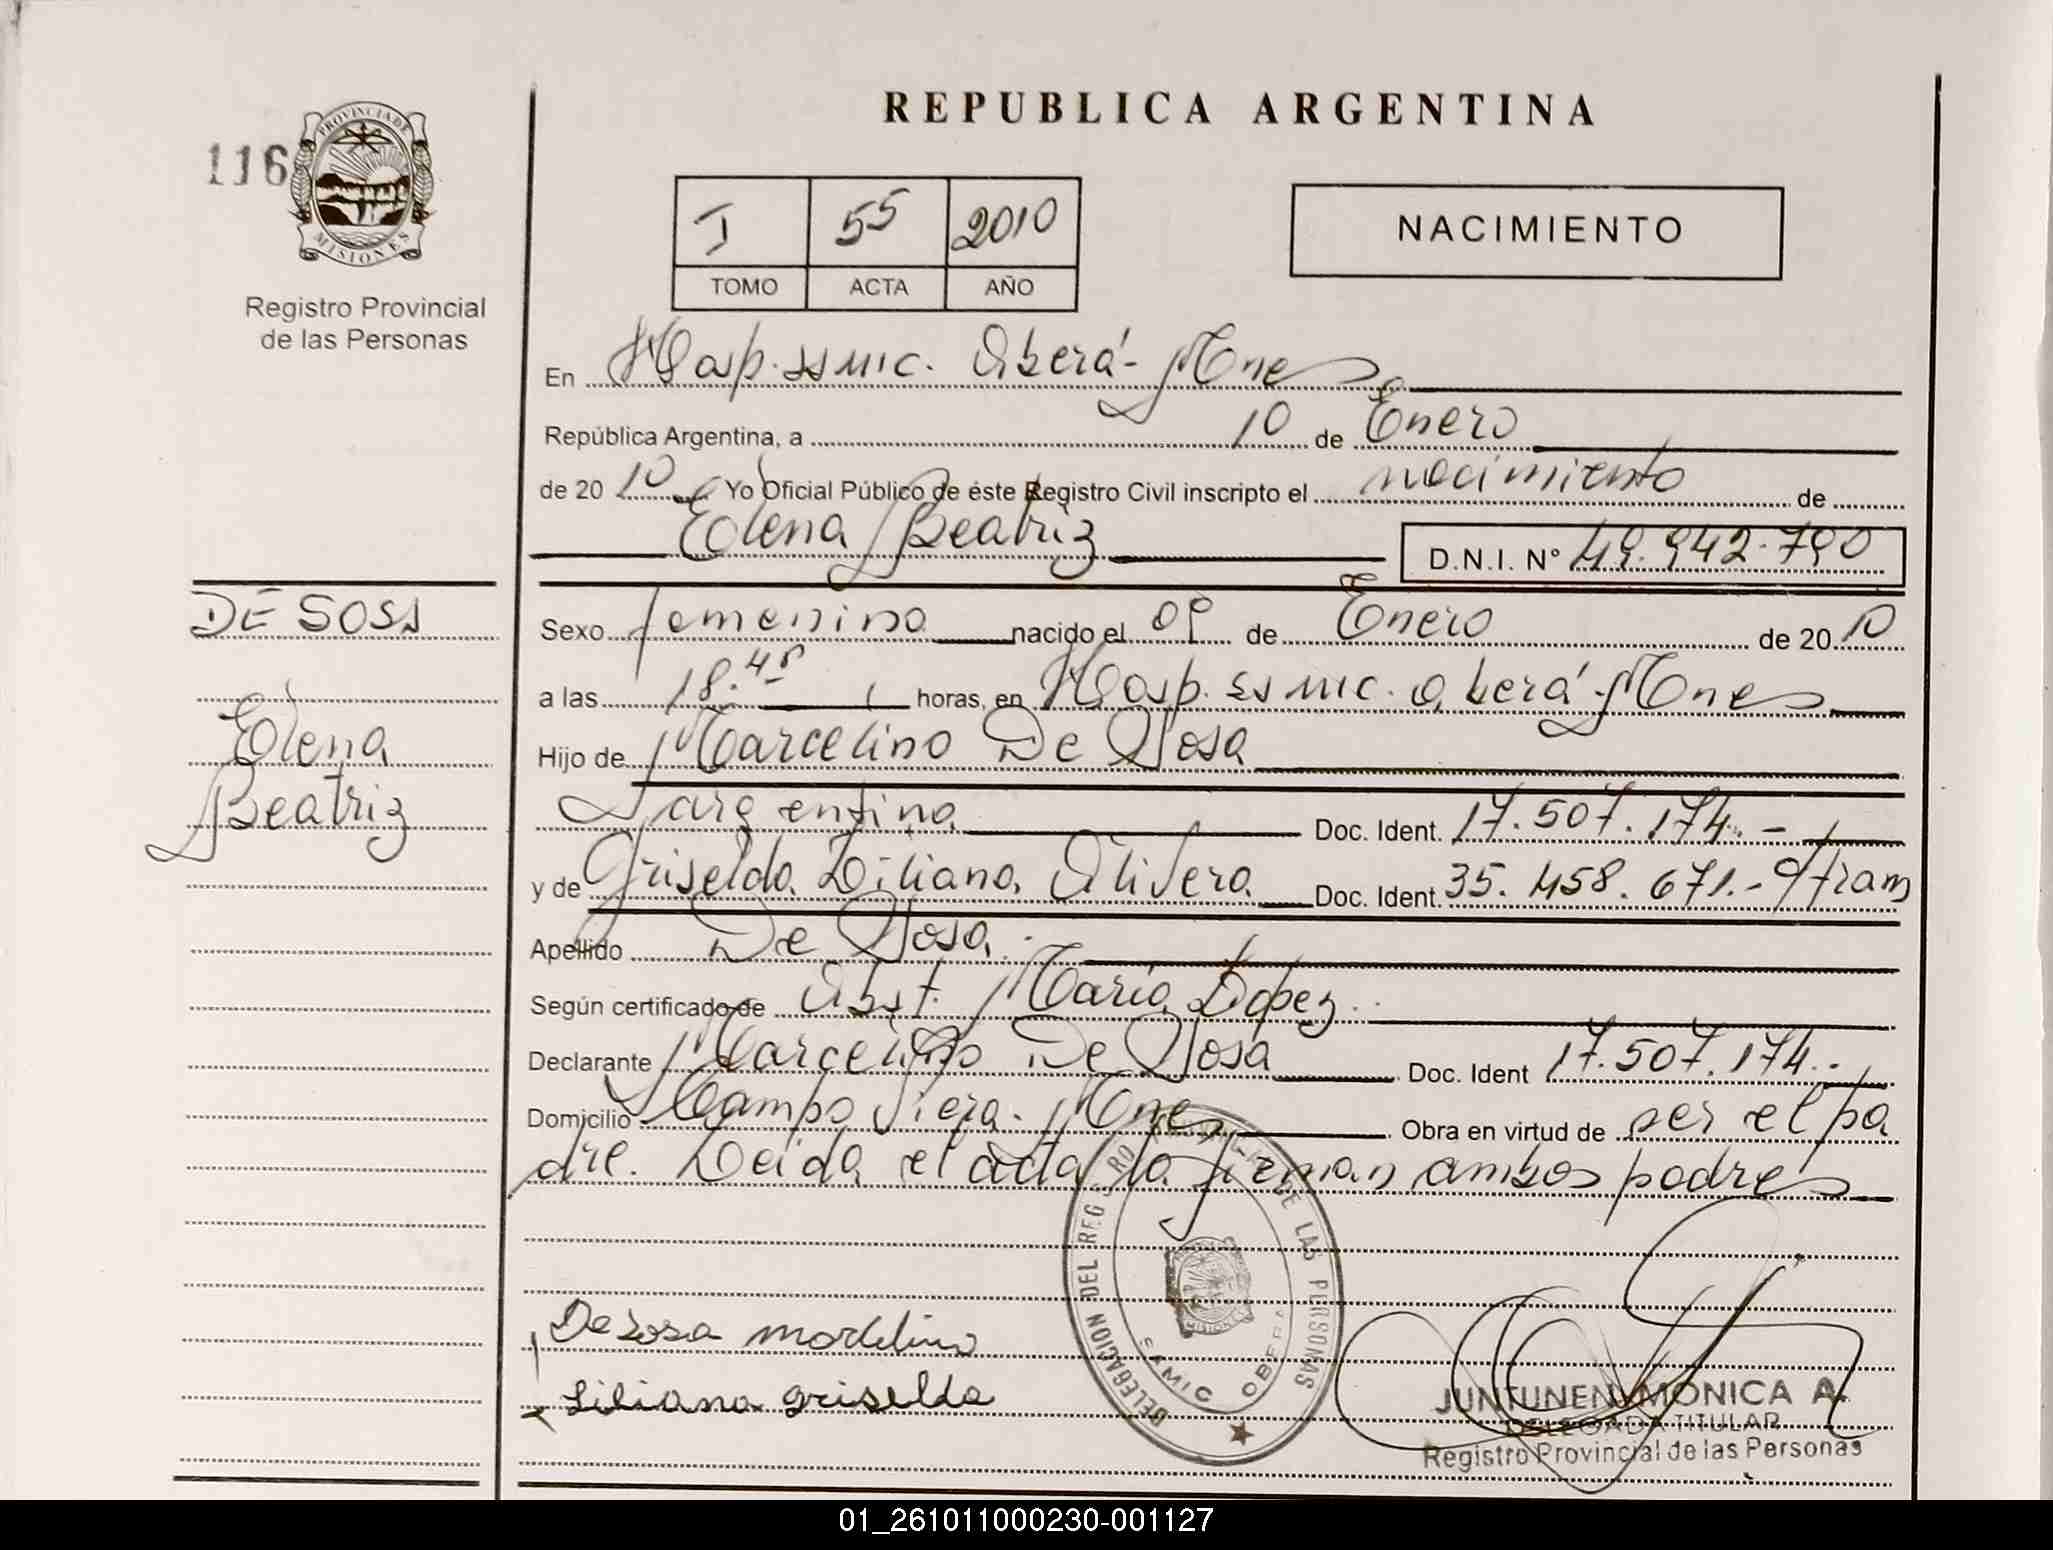 REPUBLICA ARGENTINA
116
PROVINCIA DE
MISIONES
Registro Provincial
de las Personas
I 55 2010
TOMO ACTA AÑO
NACIMIENTO
En Hosp. ssmic. Oberá - Mnes
República Argentina, a 10 de Enero
de 2010 Yo Oficial Público de éste Registro Civil inscripto el nacimiento de
Elena Beatriz D.N.I. Nº 49.942.790
DE SOSA
Elena
Beatriz
Sexo femenino nacido el 09 de Enero de 2010
a las 18.45 horas, en Hosp. ssmic. Oberá - Mnes
Hijo de Marcelino De Sosa
argentina Doc. Ident. 17.507.174.-
y de Griselda Liliana Olivera Doc. Ident. 35.458.671.-
Apellido De Sosa.
Según certificado de Obst. María Lopez.
Declarante Marcelino De Sosa Doc. Ident 17.507.174.-
Domicilio Campo Viera. Mnes Obra en virtud de ser el pa
dre. Leida el acta la firman ambos padres
De sosa marcelino
Liliana griselda
DELEGACION DEL REGISTRO PROVINCIAL DE LAS PERSONAS
SAMIC OBERA
JUNTUNEN MONICA A.
DELEGADA TITULAR
Registro Provincial de las Personas
01_261011000230-001127